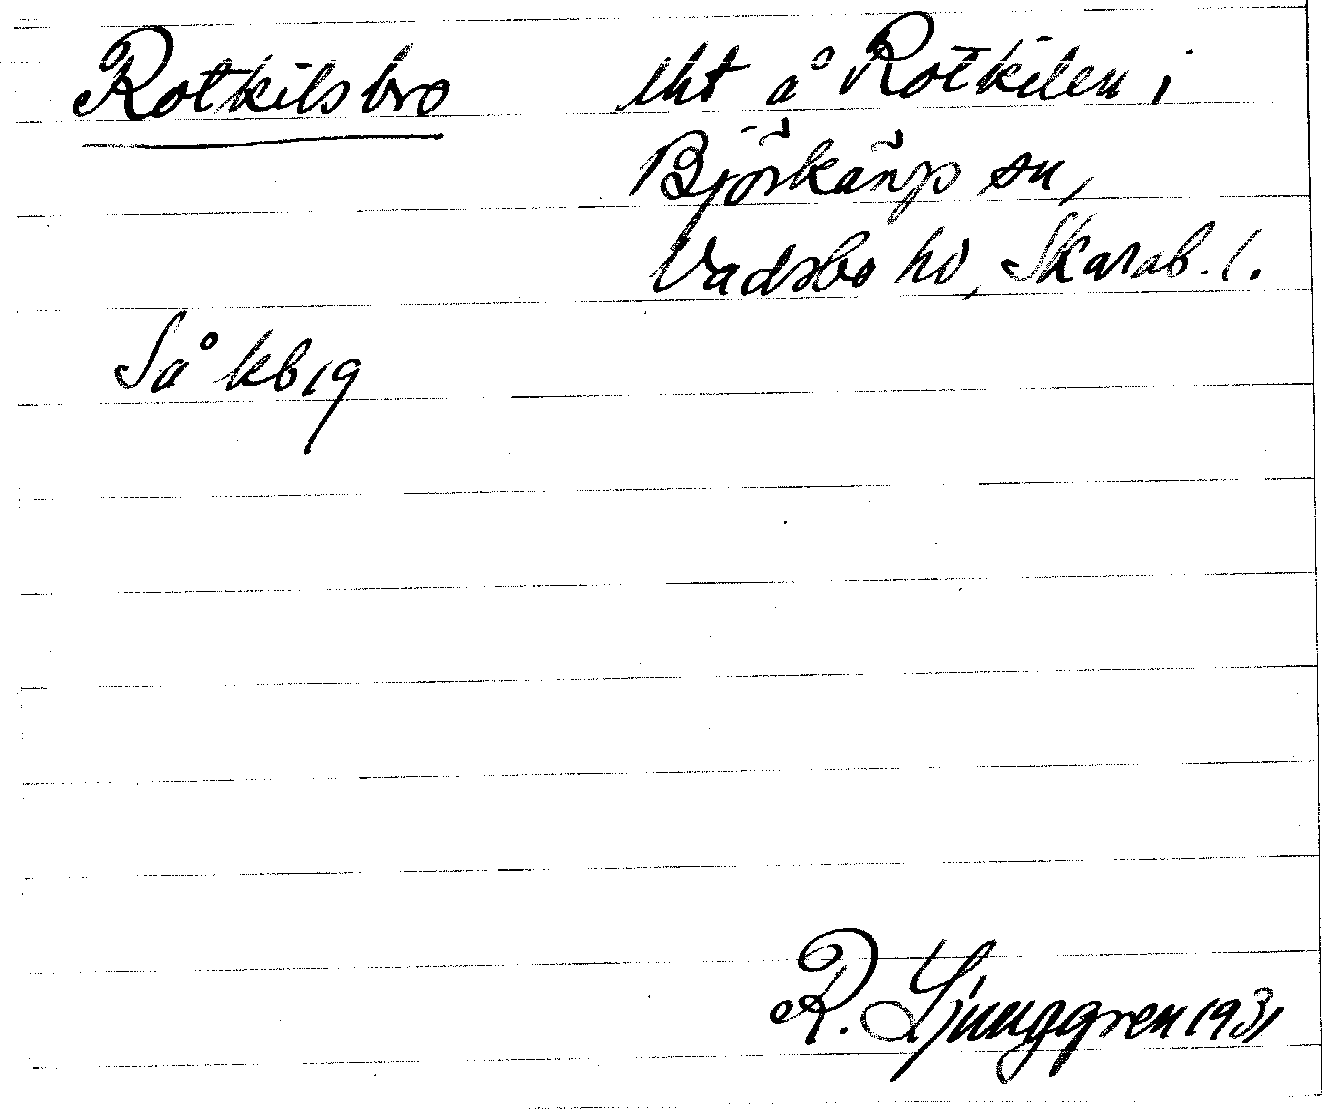 Rotkilsbro lht å Rotkilen i
Björkäng sn,
Vadsbo hd, Skarab. l.
Så kb 19
R. Ljunggren 1931